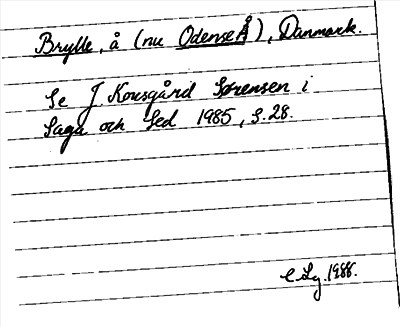 Brylle, å (nu Odense Å), Danmark.
Se J Kousgård Sørensen i
Saga och Sed 1985, s. 28.
1986.